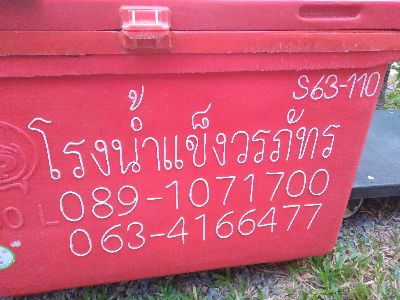 S63-110
โรงน้ำแข็งวรภัทร
089-1071700
063-4166477